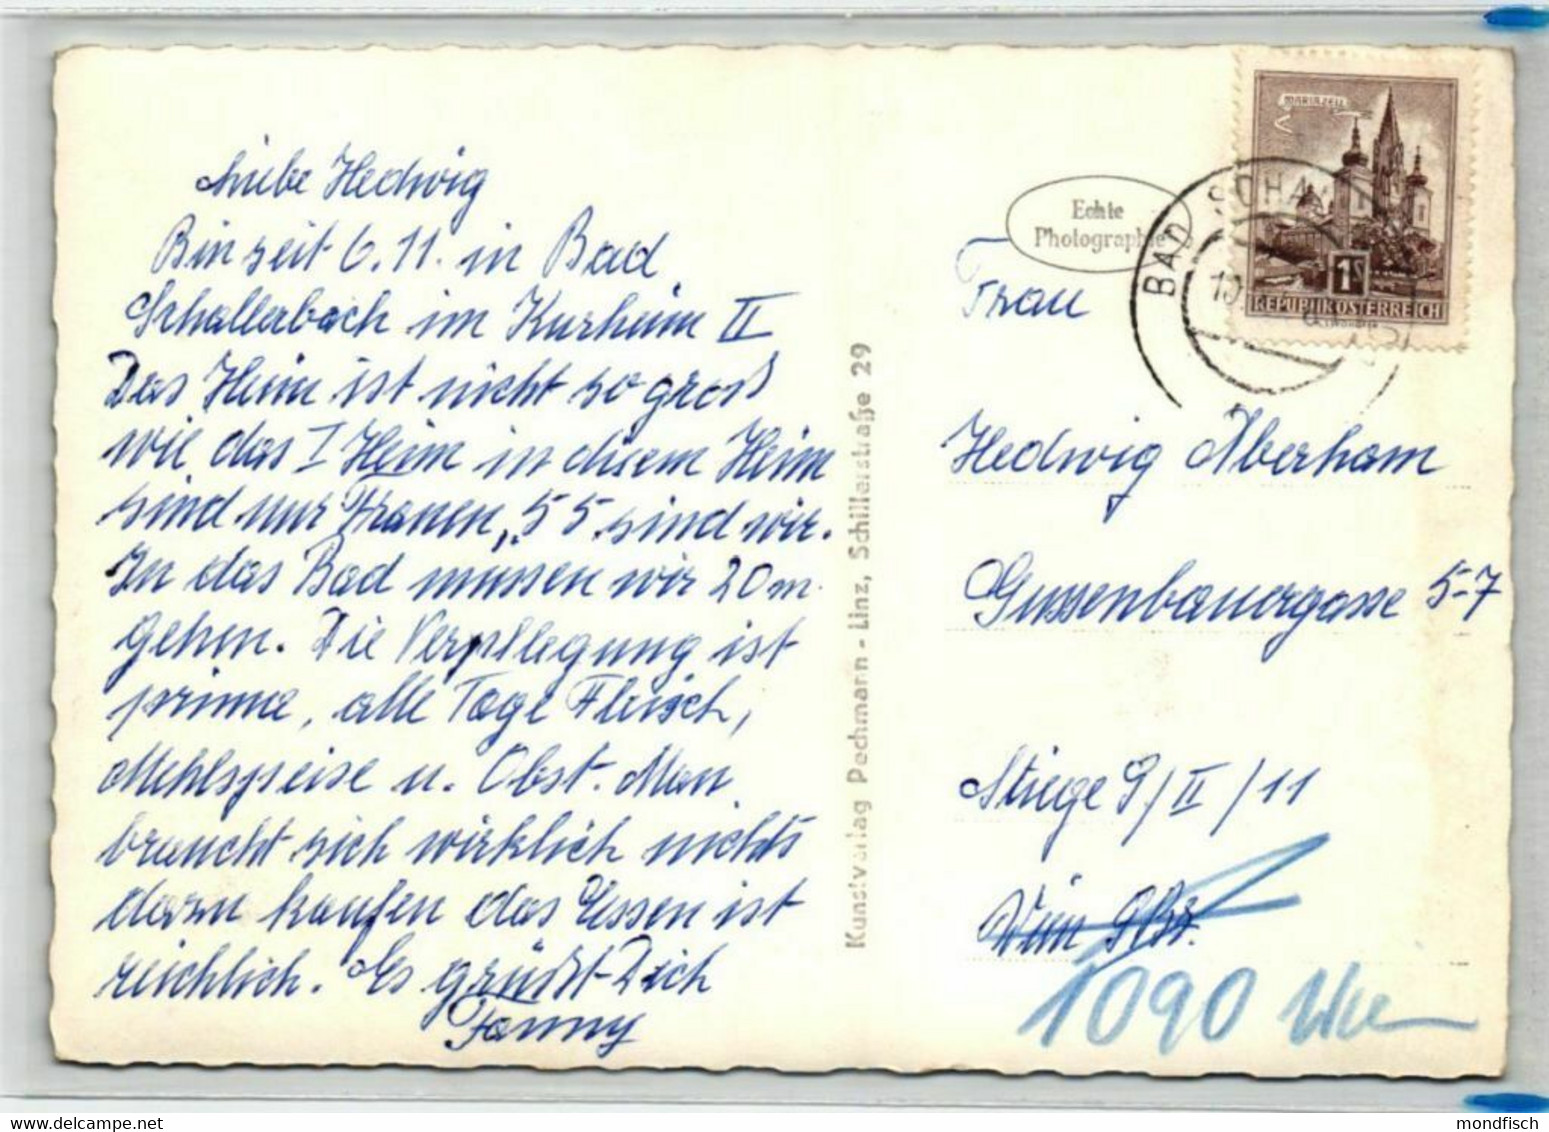 Liebe Hedwig
Bin seit 6.11. in Bad
Schallerbach im Kurheim II
Das Heim ist nicht so groß
wie das I Heim in diesem Heim
sind nur Frauen, 55 sind wir.
In das Bad müssen wir 20 m.
gehen. Die Verpflegung ist
prima, alle Tage Fleisch,
Mehlspeise u. Obst. Man
braucht sich wirklich nichts
dazu kaufen das Essen ist
reichlich. Es grüßt Dich
Fanny
Kunstverlag Pechmann - Linz, Schillerstraße 29
Echte
Photographie
MARIAZELL
1S
REPUBLIK ÖSTERREICH
BAD SCHA
10
Frau
Hedwig Aberham
Gussenbauergasse 5-7
Stiege 9/II/11
Wien
1090 Wien
mondfisch